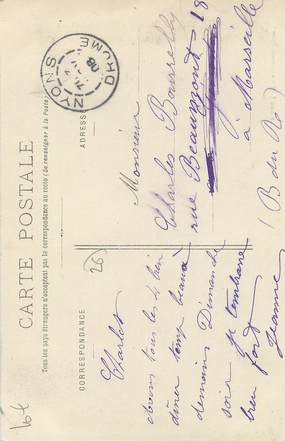 CARTE POSTALE
Tous les pays étrangers n'acceptent pas la correspondance au recto (Se renseigner à la Poste)
CORRESPONDANCE
ADRESSE
NYONS
DROME
08
(26)
Charlot
avons tous les 4 bien
dîner temps beau à
demain Dimanche
soir je t'embrasse
bien fort
Jeanne
Monsieur
Charles
rue Beaumont 18
à Marseille
(B du R)